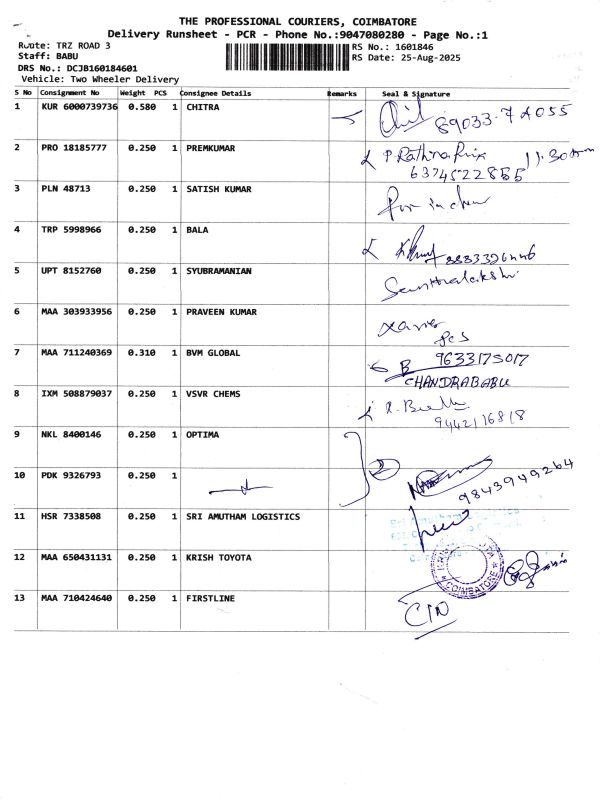 THE PROFESSIONAL COURIERS, COIMBATORE
Delivery Runsheet - PCR - Phone No.:9047080280 - Page No.:1
Route: TRZ ROAD 3 RS No.: 1601846
Staff: BABU RS Date: 25-Aug-2025
DRS No.: DCJB160184601
Vehicle: Two Wheeler Delivery
S No Consignment No Weight PCS Consignee Details Remarks Seal & Signature
1 KUR 6000739736 0.580 1 CHITRA
2 PRO 18185777 0.250 1 PREMKUMAR 11.30am
6374522855
3 PLN 48713 0.250 1 SATISH KUMAR
4 TRP 5998966 0.250 1 BALA
5 UPT 8152760 0.250 1 SYUBRAMANIAN
6 MAA 303933956 0.250 1 PRAVEEN KUMAR Xavier
Pcs
7 MAA 711240369 0.310 1 BVM GLOBAL B 9633175017
CHANDRABABU
8 IXM 508879037 0.250 1 VSVR CHEMS
9442116818
9 NKL 8400146 0.250 1 OPTIMA
10 PDK 9326793 0.250 1 9843949264
11 HSR 7338508 0.250 1 SRI AMUTHAM LOGISTICS
12 MAA 650431131 0.250 1 KRISH TOYOTA COIMBATORE
13 MAA 710424640 0.250 1 FIRSTLINE